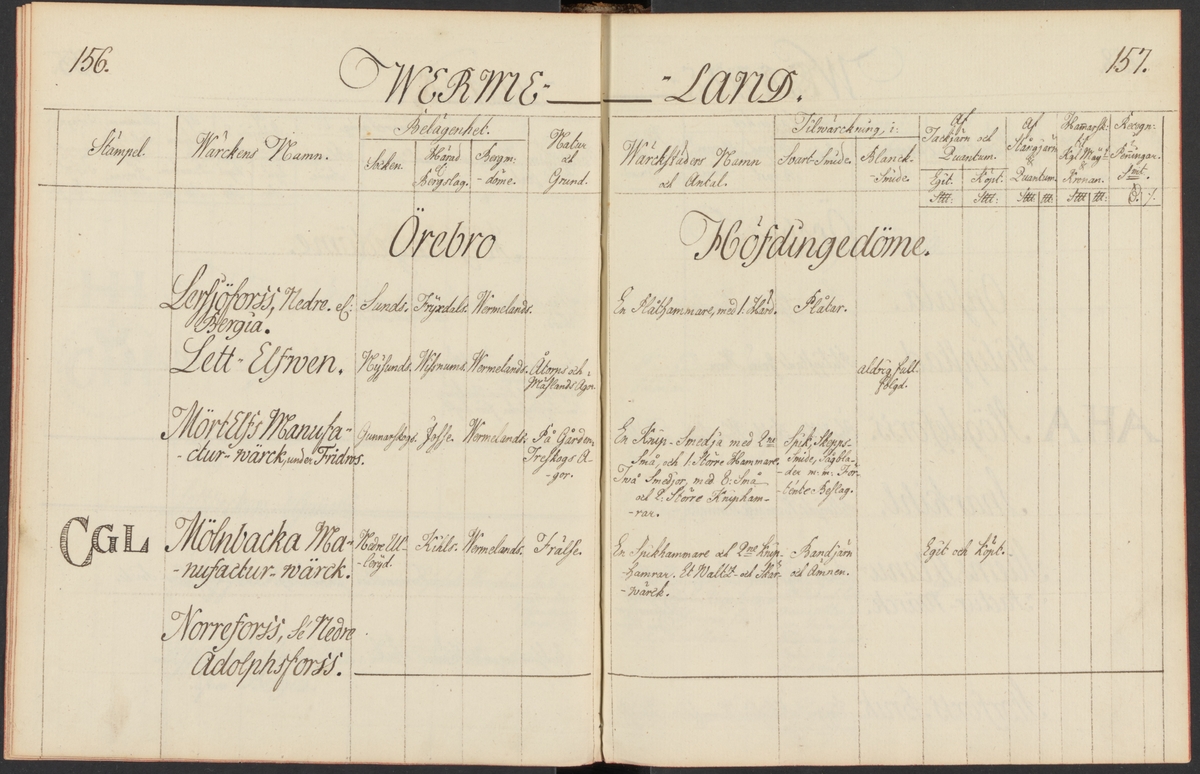 156.
157.
WERME-
-LAND.
Stämpel.
Wärckens Namn.
Belägenhet.
Socken.
Härad
&
Bergslag.
Bergm:
-döme.
Natur
och
Grund.
Wärckstäders Namn
och Antal.
Tilwärckning, i:
Svart-Smide.
Blanck-
-Smide.
Af
Tackjärn och
Quantum.
Egit.
Köpt.
Af
Stångjärn
&
Quantum.
Hamarsk:
til
Kgl. Maÿ:t
&
Kronan.
Recogn:
Penningar.
Smt.
Örebro
Höfdingedöme.
Lersjöforss, Nedre. el:
Bergia.
Sunds.
Fryxdals.
Wermelands.
En Plåthammare, med 1. Härd.
Plåtar.
Lett-Elfwen.
Nÿsunds.
Wisnums.
Wermelands.
Åtorns och
aldrig full
fölgd.
MörtElfs Manufa-
-ctur-wärck, under Fridros.
Gunnarskogs.
Jösse.
Wermelands.
På Gården
Trefkogs Ä-
-gor.
En Knip-Smedja med 2ne
Små, och 1. Större Hammare.
Två Smedjor, med 8: Små
och 2: Större Knipham-
-rar.
Spik, Skepps-
Smide, Sågbla-
-der m: m: För-
-tente Beslag.
CGL
Mölnbacka Ma-
-nufactur-wärck.
Nedre Ull-
-leryd.
Kihls.
Wermelands.
Frälse.
En Spikhammare och 2ne Knip-
-hamrar. Et Waltz- och Skär-
-wärck.
Bandjärn
och Ämnen.
Egit och Köpt.
Norreforss, Sé Nedre
Adolphsforss.